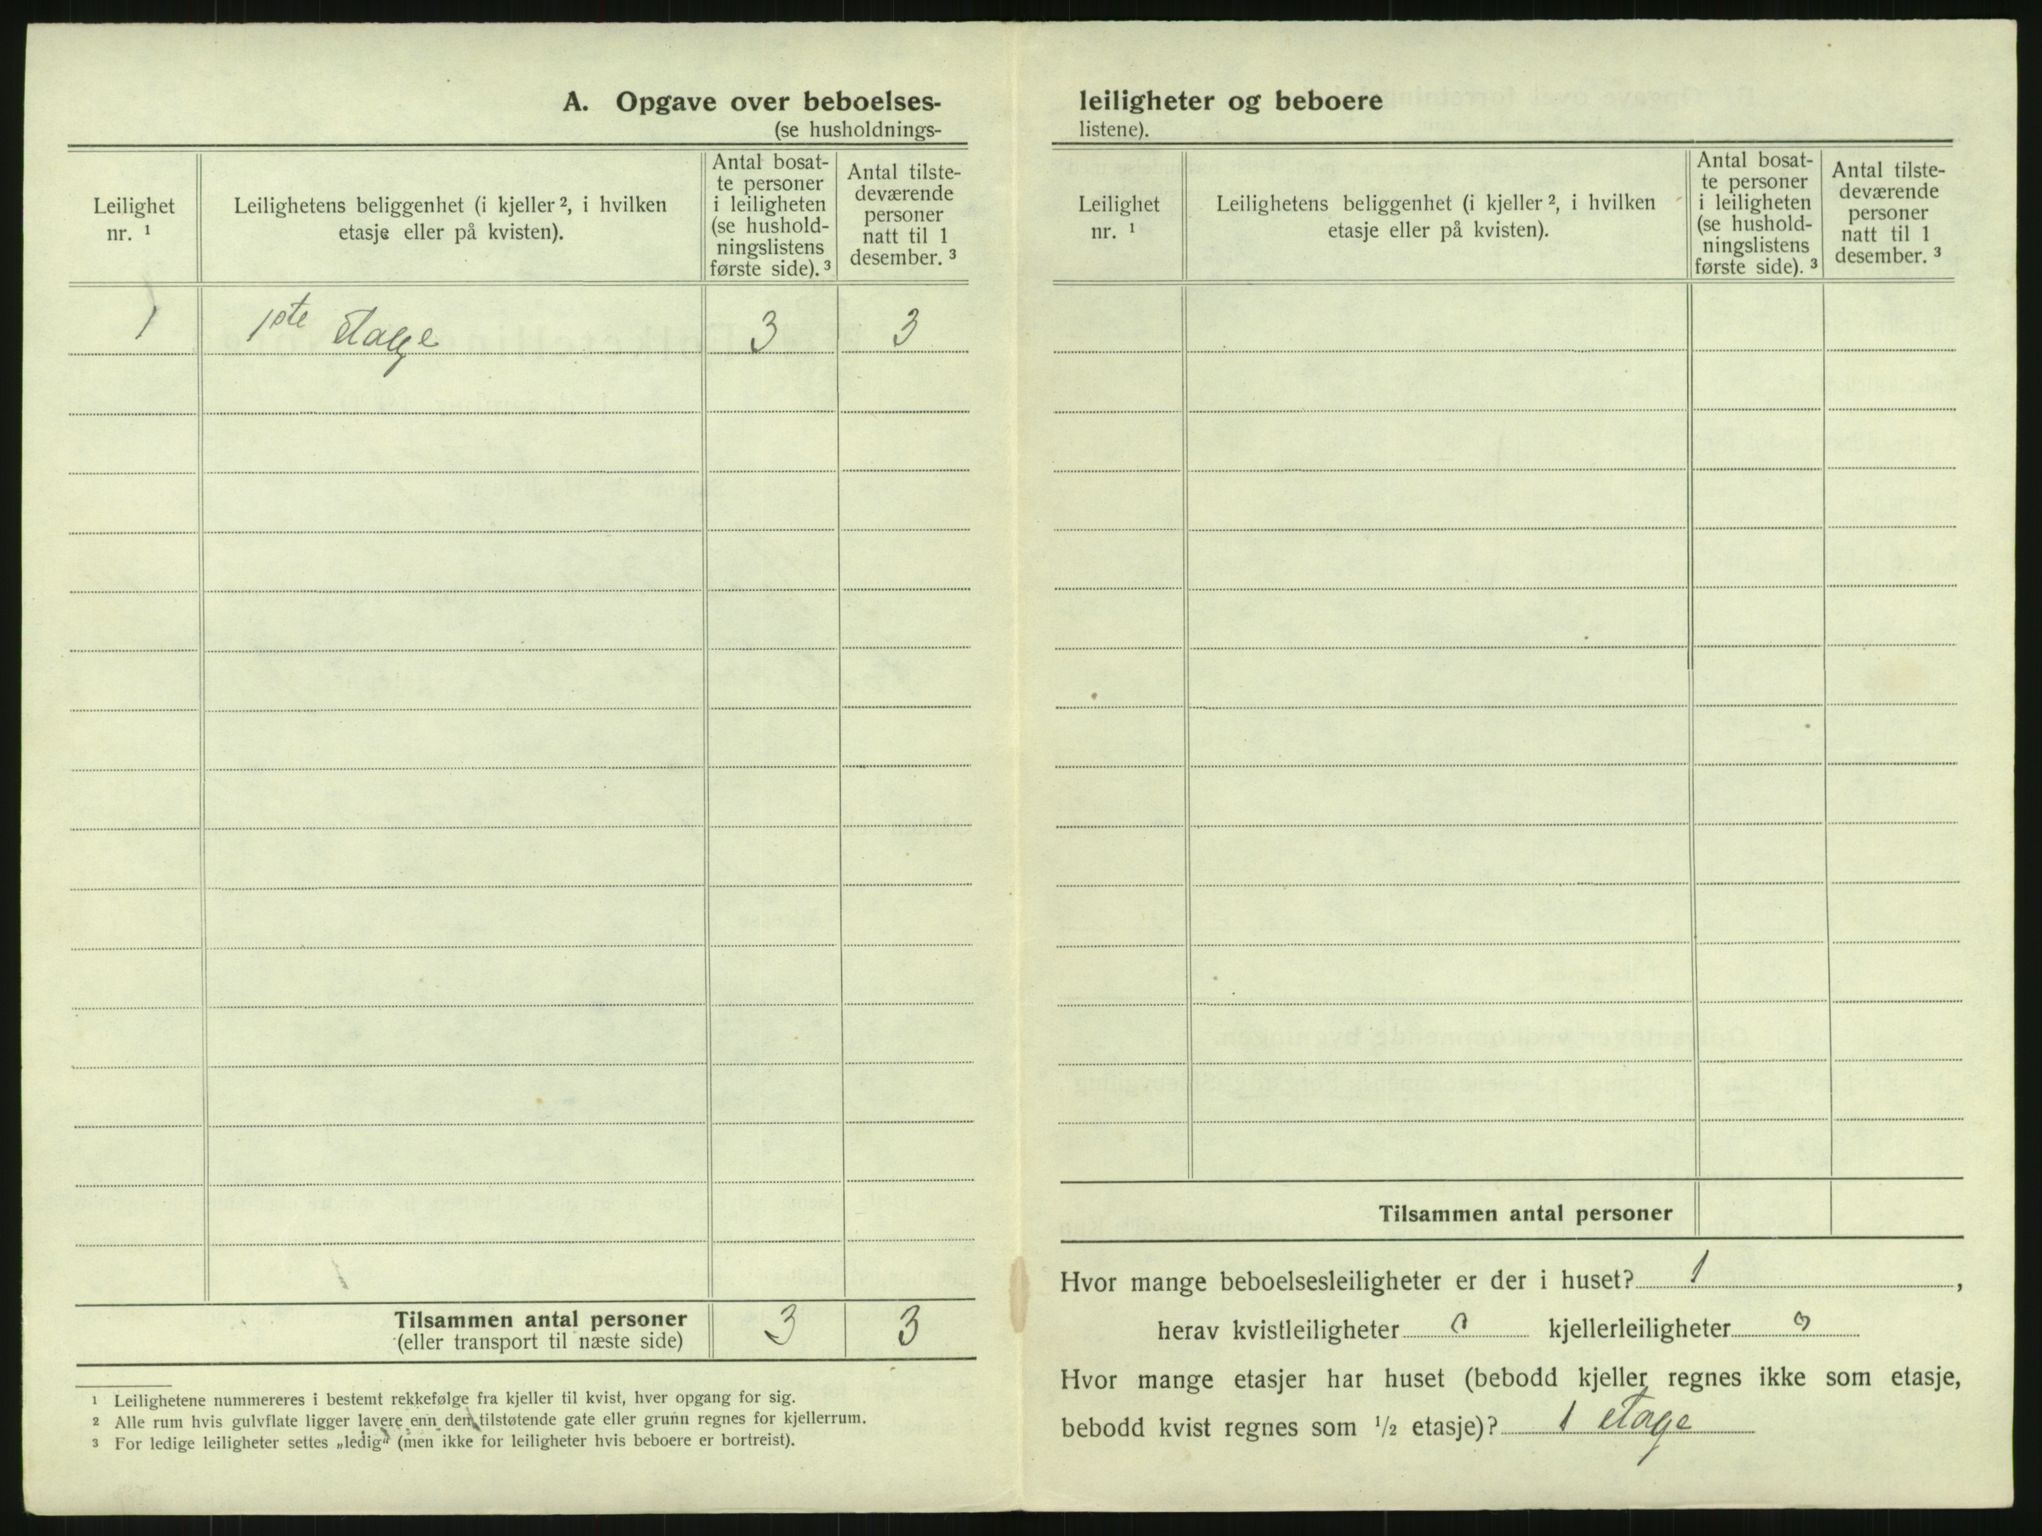 A. Opgave over beboelses-
(se husholdnings-
Leilighet
nr. 1
Leilighetens beliggenhet (i kjeller 2, i hvilken
etasje eller på kvisten).
Antal bosat-
te personer
i leiligheten
(se hushold-
ningslistens
første side). 3
Antal tilste-
deværende
personer
natt til 1
desember. 3
1 1ste Etage 3 3
Tilsammen antal personer 3 3
(eller transport til næste side)
1 Leilighetene nummereres i bestemt rekkefølge fra kjeller til kvist, hver opgang for sig.
2 Alle rum hvis gulvflate ligger lavere enn den tilstøtende gate eller grunn regnes for kjellerrum.
3 For ledige leiligheter settes „ledig" (men ikke for leiligheter hvis beboere er bortreist).
leiligheter og beboere
listene).
Leilighet
nr. 1
Leilighetens beliggenhet (i kjeller 2, i hvilken
etasje eller på kvisten).
Antal bosat-
te personer
i leiligheten
(se hushold-
ningslistens
første side). 3
Antal tilste-
deværende
personer
natt til 1
desember. 3
Tilsammen antal personer
Hvor mange beboelsesleiligheter er der i huset? 1,
herav kvistleiligheter 0 kjellerleiligheter 0
Hvor mange etasjer har huset (bebodd kjeller regnes ikke som etasje,
bebodd kvist regnes som 1/2 etasje)? 1 etage